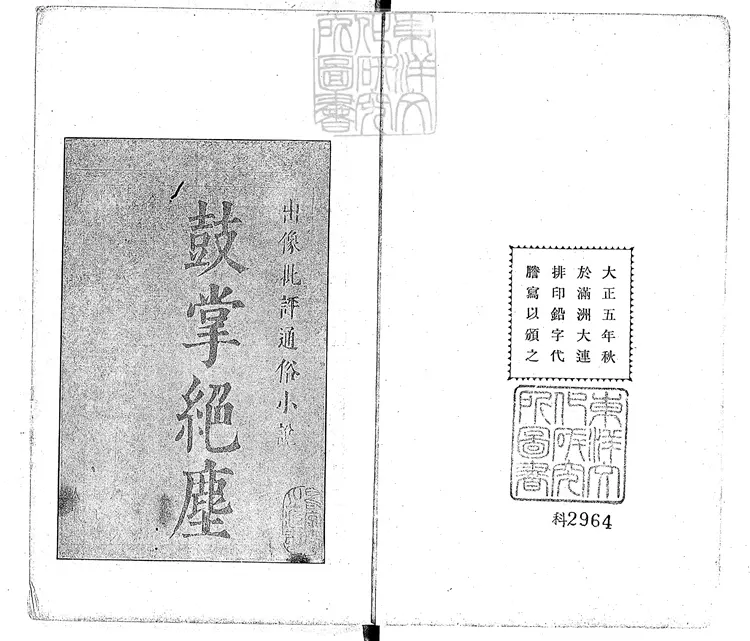 大正五年秋
於滿洲大連
排印鉛字代
謄寫以頒之
東洋文
化研究
所圖書
科2964
東洋文
化研究
所圖書
出像批評通俗小說
鼓掌絕塵